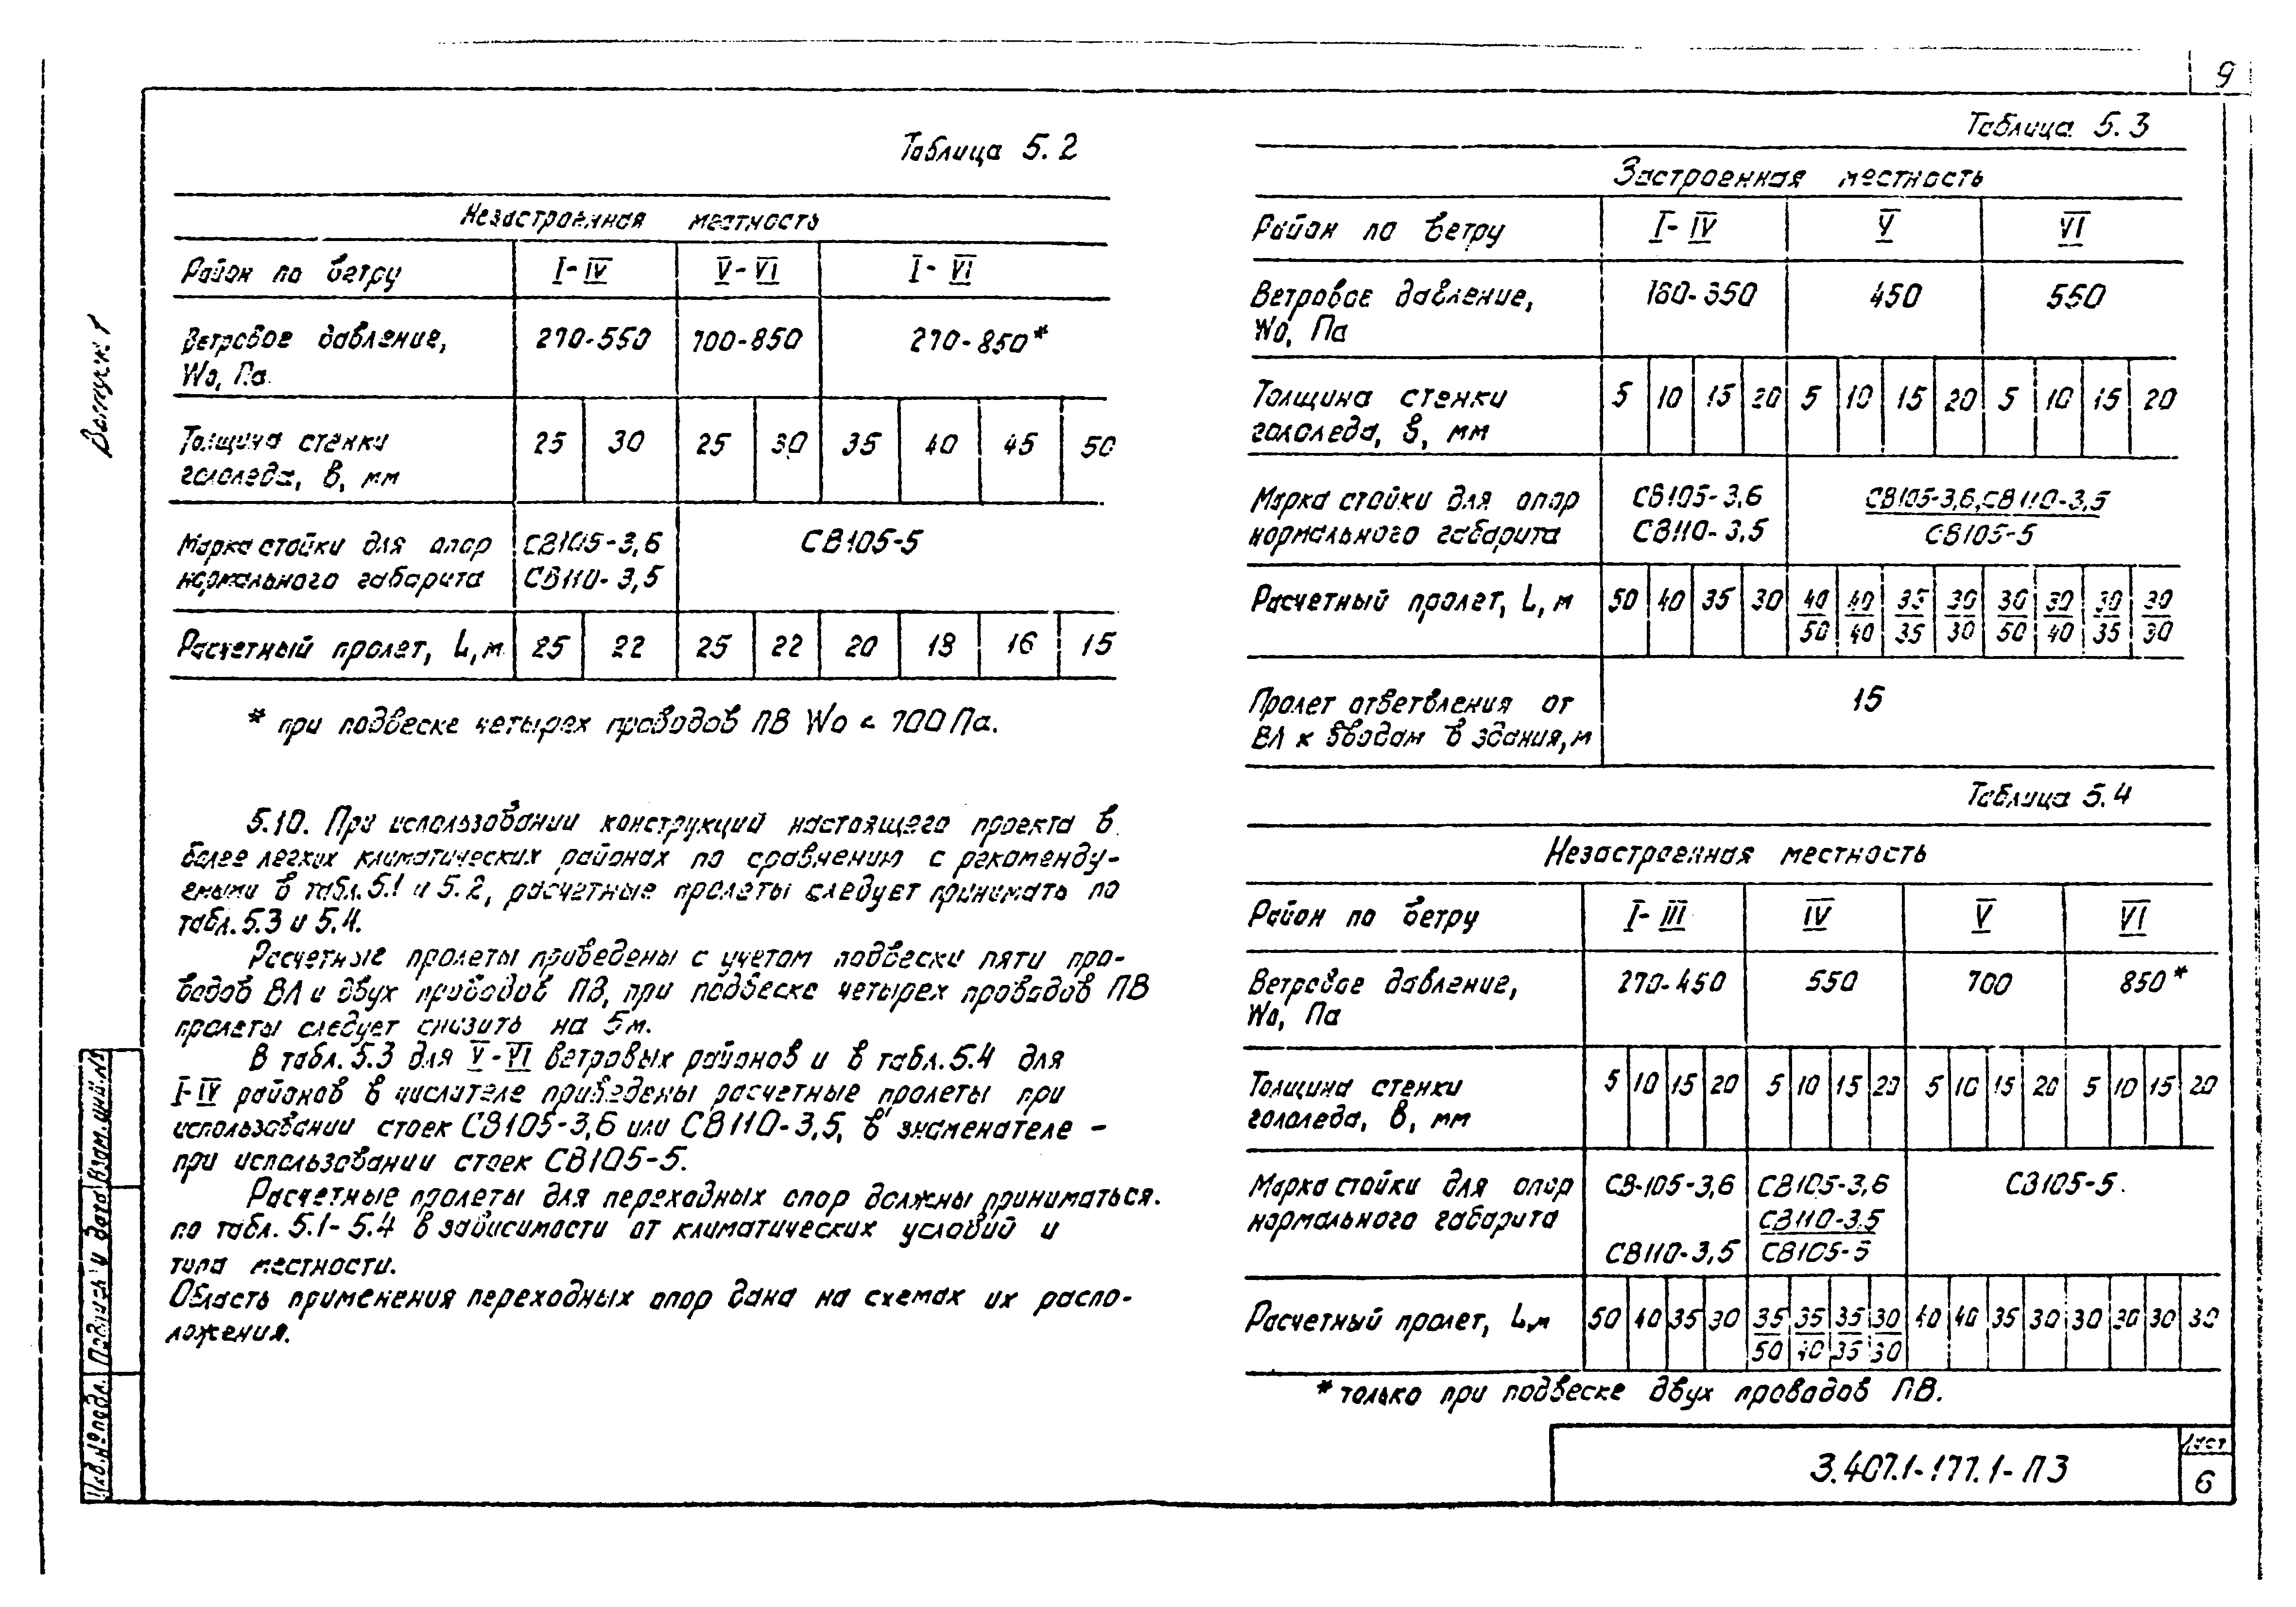 9
Выпуск 1
Таблица 5.2
Незастроенная местность
Район по ветру I-IV V-VI I-VI
Ветровое давление, 270-550 700-850 270-850*
Wo, Па
Толщина стенки 25 30 25 30 35 40 45 50
гололеда, в, мм
Марка стойки для опор СВ105-3,6 СВ105-5
нормального габарита СВ110-3,5
Расчетный пролет, L, м 25 22 25 22 20 18 16 15
* при подвеске четырех проводов ПВ Wo < 700 Па.
5.10. При использовании конструкций настоящего проекта в
более легких климатических районах по сравнению с рекоменду-
емыми в табл. 5.1 и 5.2, расчетные пролеты следует принимать по
табл. 5.3 и 5.4.
Расчетные пролеты приведены с учетом подвески пяти про-
водов ВЛ и двух проводов ПВ, при подвеске четырех проводов ПВ
пролеты следует снизить на 5м.
В табл. 5.3 для V-VI ветровых районов и в табл. 5.4 для
I-IV районов в числителе приведены расчетные пролеты при
использовании стоек СВ105-3,6 или СВ110-3,5, в знаменателе -
при использовании стоек СВ105-5.
Расчетные пролеты для переходных опор должны приниматься.
по табл. 5.1-5.4 в зависимости от климатических условий и
типа местности.
Область применения переходных опор дана на схемах их распо-
ложения.
Таблица 5.3
Застроенная местность
Район по ветру I-IV V VI
Ветровое давление, 160-350 450 550
Wo, Па
Толщина стенки 5 10 15 20 5 10 15 20 5 10 15 20
гололеда, в, мм
Марка стойки для опор СВ105-3,6 СВ105-3,6, СВ110-3,5
нормального габарита СВ110-3,5 СВ105-5
Расчетный пролет, L, м 50 40 35 30 40 40 35 30 30 30 30 30
50 40 35 30 50 40 35 30
Пролет ответвления от 15
ВЛ к вводам в здания, м
Таблица 5.4
Незастроенная местность
Район по ветру I-III IV V VI
Ветровое давление, 270-450 550 700 850*
Wo, Па
Толщина стенки 5 10 15 20 5 10 15 20 5 10 15 20 5 10 15 20
гололеда, в, мм
Марка стойки для опор СВ-105-3,6 СВ105-3,6 СВ105-5.
нормального габарита СВ110-3,5
СВ110-3,5 СВ105-5
Расчетный пролет, L, м 50 40 35 30 35 35 35 30 40 40 35 30 30 30 30 30
50 40 35 30
* только при подвеске двух проводов ПВ.
3.407.1-177.1-ПЗ
Лист
6
Инв.№подл. Подпись и дата Взам.инв.№